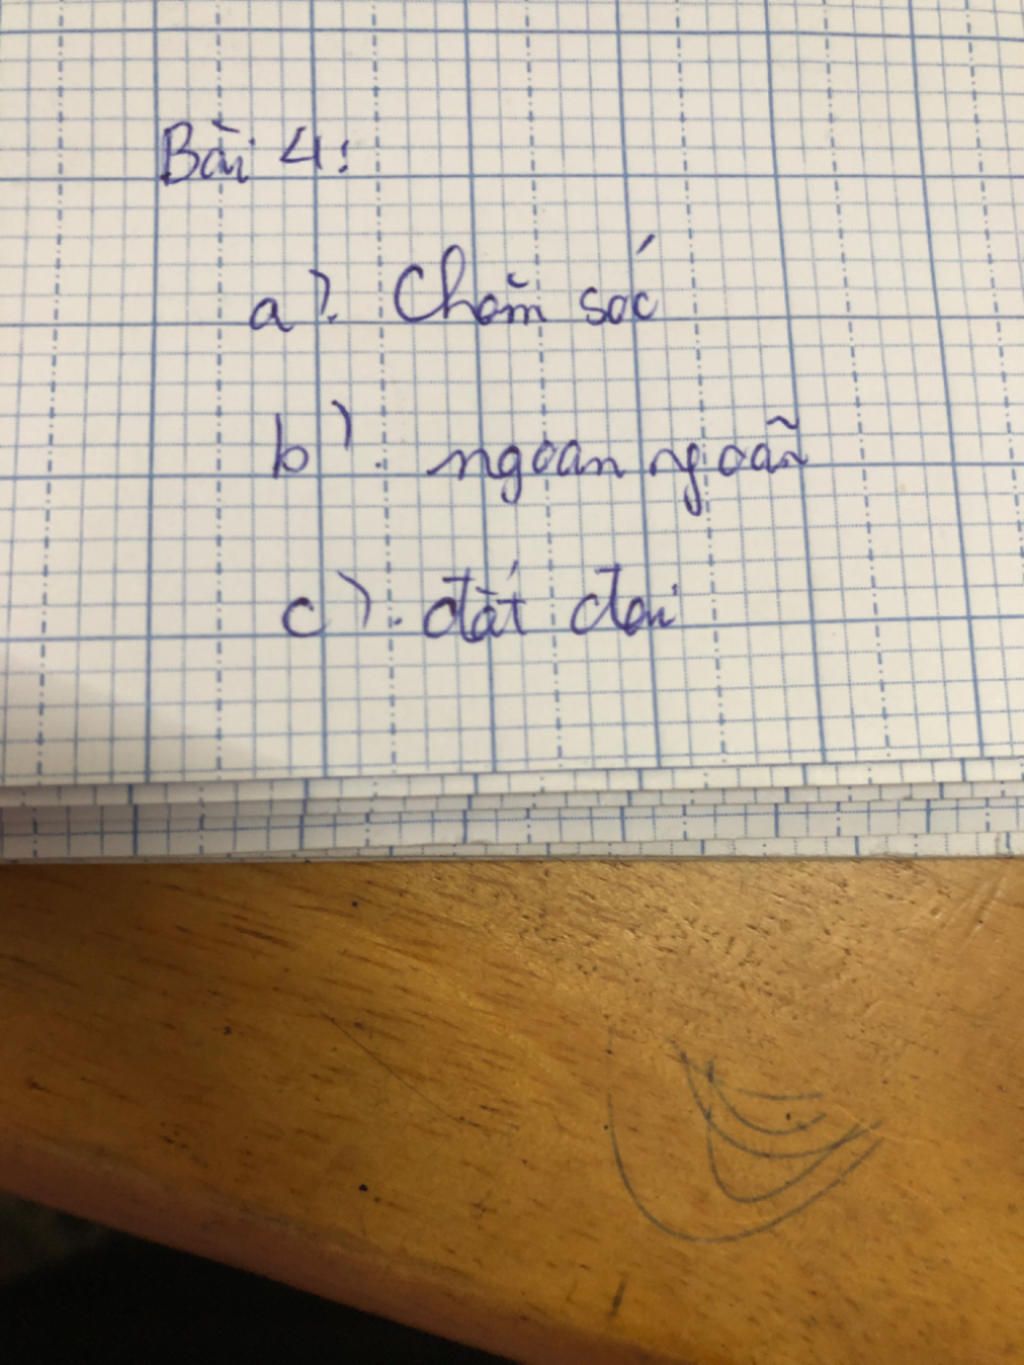 Bài 4:
a). Chăm sóc
b). ngoan ngoãn
c). đất đai